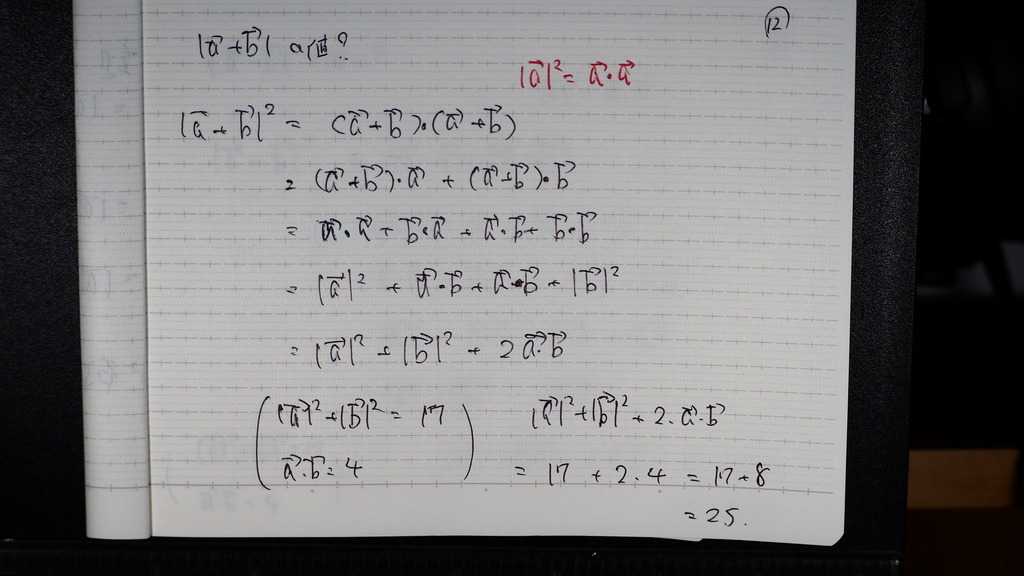 ⑫
|a⃗+b⃗| の値?
|a⃗|² = a⃗・a⃗
|a⃗+b⃗|² = (a⃗+b⃗)・(a⃗+b⃗)
= (a⃗+b⃗)・a⃗ + (a⃗+b⃗)・b⃗
= a⃗・a⃗ + b⃗・a⃗ + a⃗・b⃗ + b⃗・b⃗
= |a⃗|² + a⃗・b⃗ + a⃗・b⃗ + |b⃗|²
= |a⃗|² + |b⃗|² + 2a⃗・b⃗
(|a⃗|²+|b⃗|² = 17
a⃗・b⃗ = 4)
|a⃗|²+|b⃗|² + 2・a⃗・b⃗
= 17 + 2・4 = 17+8
= 25.